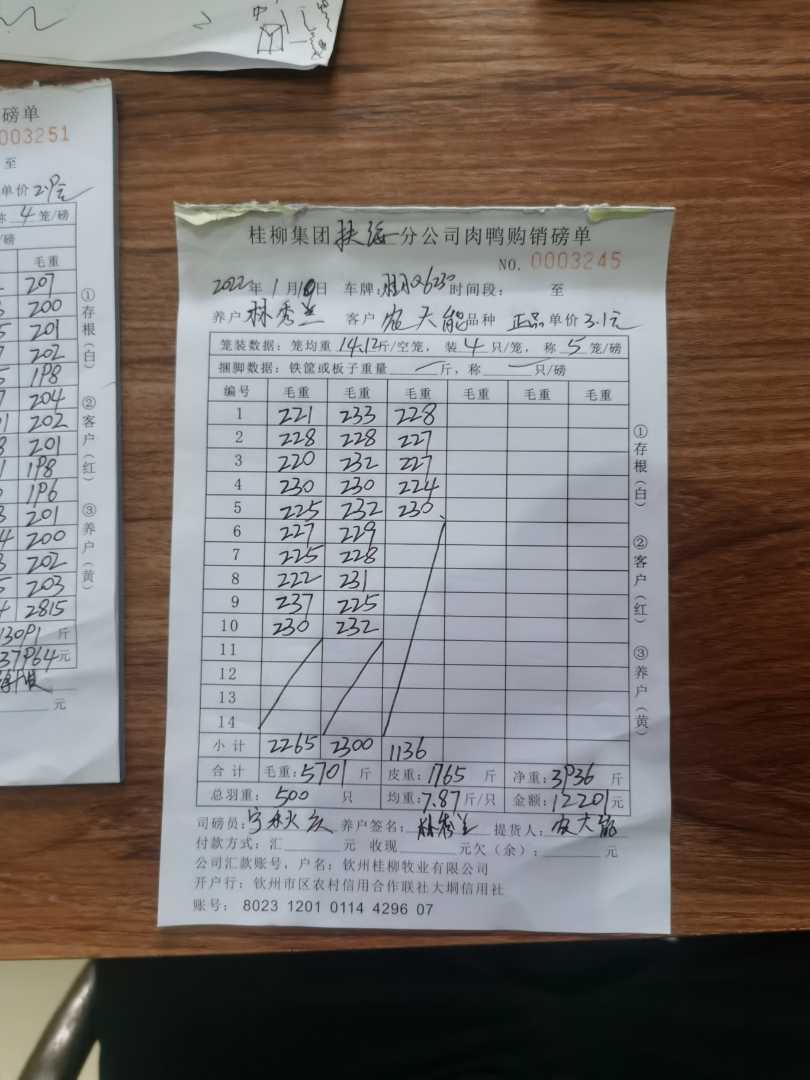 磅单
0003251
至
单价2.9元
称 4 笼/磅
/磅
毛重
207
200
201
202
198
204
202
201
198
196
201
200
202
203
2815
13091 斤
37964元
元
①存根(白)
②客户(红)
③养户(黄)
桂柳集团扶绥分公司肉鸭购销磅单
NO. 0003245
2022年1月10日 车牌: 时间段: 至
养户 林秀兰 客户 农大能 品种 正品 单价3.1元
笼装数据: 笼均重 14.12斤/空笼, 装 4 只/笼, 称 5 笼/磅
捆脚数据: 铁筐或板子重量 — 斤, 称 — 只/磅
编号 毛重 毛重 毛重 毛重 毛重 毛重
1 221 233 228
2 228 228 227
3 220 232 227
4 230 230 224
5 225 232 230
6 227 229
7 225 228
8 222 231
9 237 225
10 230 232
11
12
13
14
小计 2265 2300 1136
合计 毛重:5701 斤 皮重:1765 斤 净重:3936 斤
总羽重: 500 只 均重:7.87斤/只 金额:12201元
司磅员: 养户签名: 林秀兰 提货人: 农大能
付款方式: 汇 元 收现 元欠(余): 元
公司汇款账号, 户名: 钦州桂柳牧业有限公司
开户行: 钦州市区农村信用合作联社大垌信用社
账号: 8023 1201 0114 4296 07
①存根(白)
②客户(红)
③养户(黄)